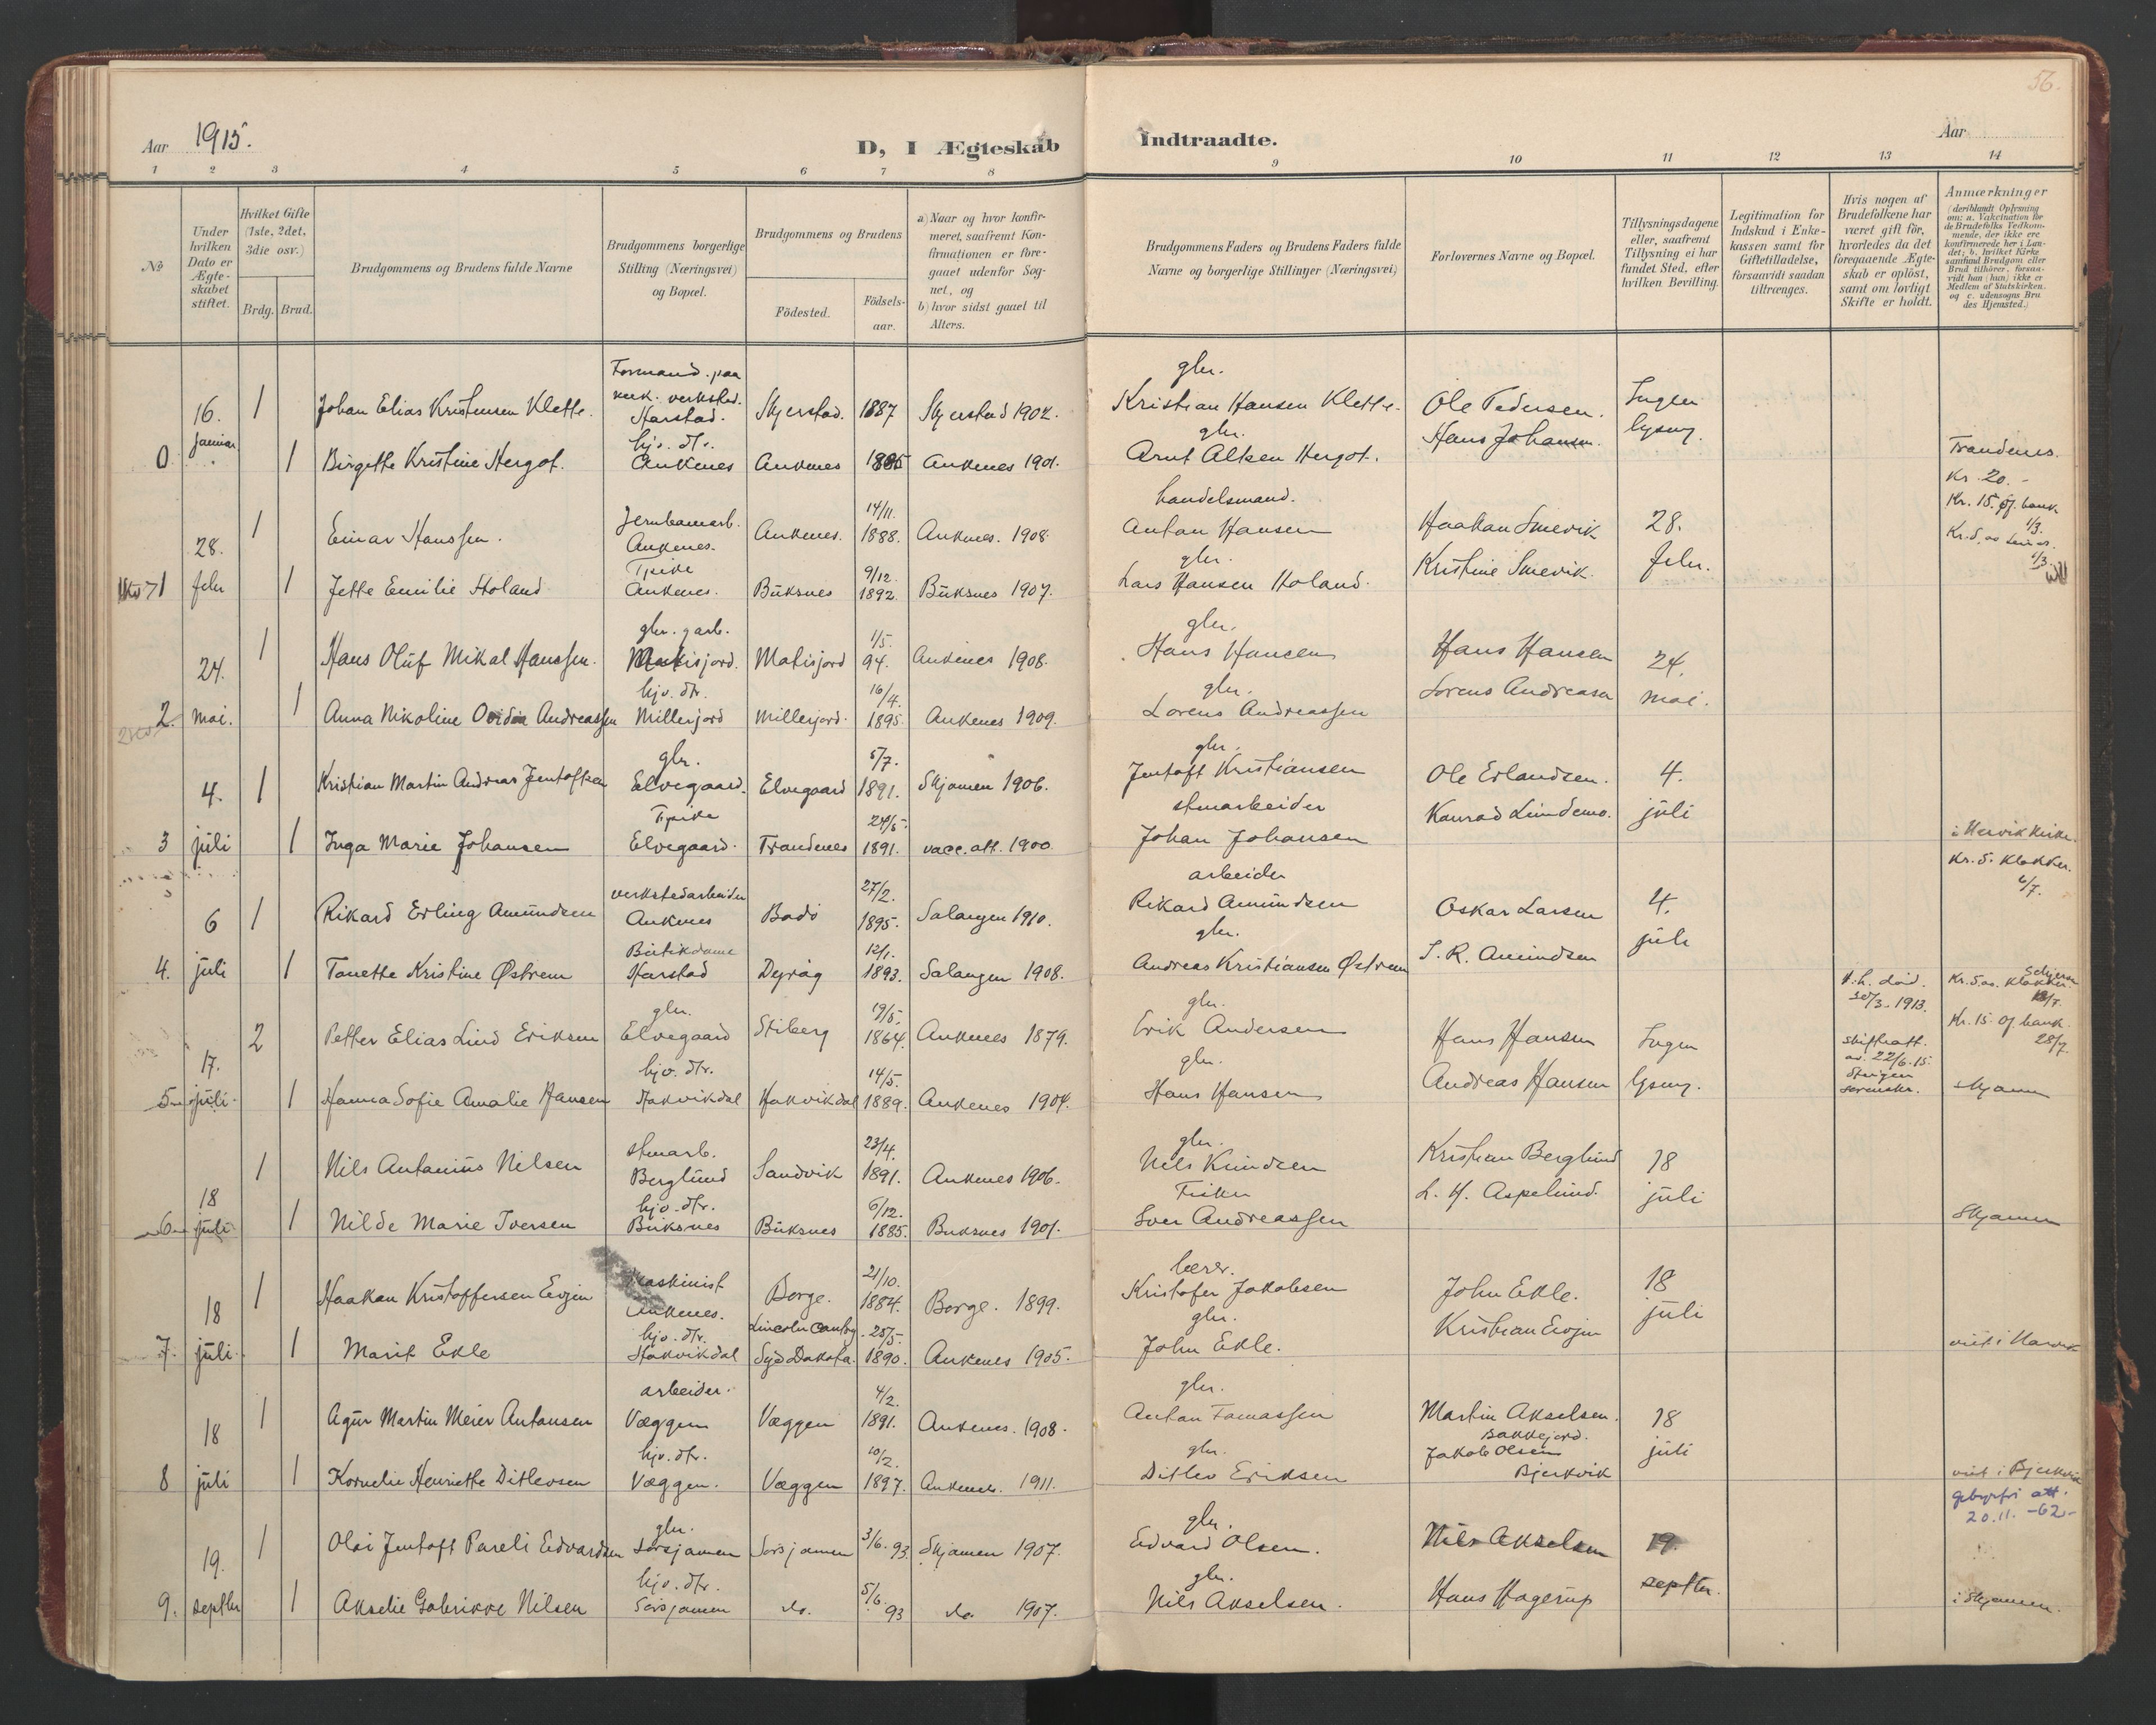 56.
Aar 1915.
D, I Ægteskab Indtraadte.
Aar
1 2 3 4 5 6 7 8 9 10 11 12 13 14
№
Under hvilken Dato er Ægteskabet stiftet.
Hvilket Gifte (1ste, 2det, 3die osv.)
Brdg. Brud.
Brudgommens og Brudens fulde Navne
Brudgommens borgerlige Stilling (Næringsvei) og Bopæl.
Brudgommens og Brudens
Födested.
Födselsaar.
a) Naar og hvor konfirmeret, saafremt Konfirmationen er foregaaet udenfor Sognet, og
b) hvor sidst gaaet til Alters.
Brudgommens Faders og Brudens Faders fulde Navne og borgerlige Stillinger (Næringsvei)
Forlovernes Navne og Bopæl.
Tillysningsdagene eller, saafremt Tillysning ei har fundet Sted, efter hvilken Bevilling.
Legitimation for Indskud i Enkekassen samt for Giftetilladelse, forsaavidt saadan tiltrænges.
Hvis nogen af Brudefolkene har været gift för, hvorledes da det foregaaende Ægteskab er oplöst, samt om lovligt Skifte er holdt.
Anmærkninger (deriblandt Oplysning om: a. Vakcination for de Brudefolks Vedkommende, der ikke ere konfirmerede her i Landet; b. hvilket Kirkesamfund Brudgom eller Brud tilhörer, forsaavidt han (hun) ikke er Medlem af Statskirken, og c. udensogns Brudes Hjemsted.)
Formand paa mek. verksted. gbr.
16. 1 Johan Elias Kristensen Klette. Harstad. Skjerstad. 1887 Skjerstad 1902. Kristian Hansen Klette. Ole Pedersen. Ingen
januar hjv. dtr. gbr. Hans Johansen. lysng.
0 1 Birgitte Kristine Hergot. Ankenes Ankenes 1885 Ankenes 1901. Arnt Altsen Hergot. Trandenes.
Kr. 20.-
14/11. handelsmand. Kr. 15. oj. bank 1/3.
28. 1 Einar Hanssen. Jernbanearb. Ankenes. Ankenes. 1888. Ankenes. 1908. Anton Hansen Haakan Smevik 28.
Tpike 9/12. gbr.
1 febr 1 Jette Emilie Holand Ankenes. Buksnes 1892. Buksnes 1907. Lars Hansen Holand. Kristine Smevik. febr.
gbr. garb. 1/5. gbr.
24. 1 Hans Oluf Mikal Hanssen. Matisjord. Matisjord 94. Ankenes 1908. Hans Hansen Hans Hansen 24.
hjv. dtr. 16/4. gbr. Lorens Andreasen mai.
2. mai. 1 Anna Nikoline Ovidia Andreassen Millerjord Millerjord. 1895. Ankenes 1909. Lorens Andreassen
gbr. 5/7. gbr.
4. 1 Kristian Martin Andreas Jentoftsen Elvegaard. Elvegaard 1891. Skjomen 1906. Jentoft Kristiansen Ole Erlandsen. 4.
Tpike 24/5. stenarbeider Konrad Lindemo. juli
3 juli 1 Inga Marie Johansen Elvegaard. Trandenes 1891. vacc. att. 1900. Johan Johansen
Kr. 5. Klokker. 6/7.
verkstedarbeider 27/2. arbeider
6 1 Rikard Erling Amundsen Ankenes Bodö 1895. Salangen 1910. Rikard Amundsen Oskar Larsen 4.
Butikdame 12/1. gbr.
4. juli 1 Tanette Kristine Østrem Harstad Dyröy 1893. Salangen 1908. Andreas Kristiansen Østrem S. R. Amundsen juli
gbr. 19/5. gbr. Kr. 5.00. Klokker
17. 2 Petter Elias Lind Eriksen Elvegaard Stiberg 1864. Ankenes 1879. Erik Andersen Hans Hansen Ingen 30/3. 1913. Kr. 15 oj. bank 28/7.
hjv. dtr. 14/5. gbr. skifteatt. av. 22/6.15.
5 juli 1 Hanna Sofie Amalie Hansen Hakvikdal Hakvikdal 1889. Ankenes 1904. Hans Hansen Andreas Hansen lysng. Skjomen
stenarb. 23/4. gbr.
18 1 Nils Antonius Nilsen Berglund Sandvik 1891. Ankenes 1906. Nils Knudsen Kristian Berglund 18
hjv. dtr. 6/12. Fisker L. H. Aspelund. juli
6 juli 1 Hilde Marie Iversen Buksnes Buksnes 1885. Buksnes 1901. Iver Andreassen Skjomen
maskinist 21/10. lærer.
18 1 Haakan Kristoffersen Evjen Ankenes. Borge. 1884. Borge. 1899. Kristofer Jakobsen John Ekle. 18
hjv. dtr. Lincoln Canty 25/5. gbr.
7. juli 1 Marit Ekle Hakvikdal Syd Dakota. 1890. Ankenes 1905. John Ekle. Kristian Evjen juli viet i Narvik
arbeider. 4/2. gbr.
18 1 Agur Martin Meier Antonsen Væggen Væggen 1891. Ankenes. 1908. Anton Tomassen Martin Akselsen. Bakkejord. 18
hjv. dtr. 10/2. gbr. Jakob Olsen
8 juli 1 Kornelie Henriette Ditlevsen Væggen. Væggen 1897. Ankenes. 1911. Ditlev Eriksen Bjerkvik juli viet i Bjerkvik
gebyrfri att. 20.11.-62-
gbr. gbr.
19. 1 Olai Jentoft Pareli Edvardsen Sörsjomen Sörsjomen 3/6. 93. Skjomen 1907. Edvard Olsen. Nils Akselsen 19.
hjv. dtr. gbr.
9. septbr 1 Akselie Gabrikke Nilsen Sörsjomen do. 5/6. 93 do. 1907. Nils Akselsen. Hans Hagerup septbr. i Skjomen.